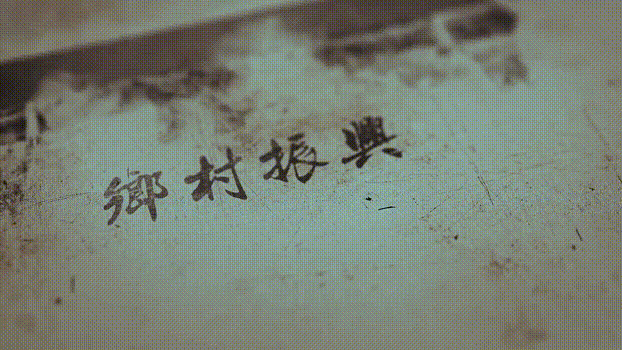 鄉村振興